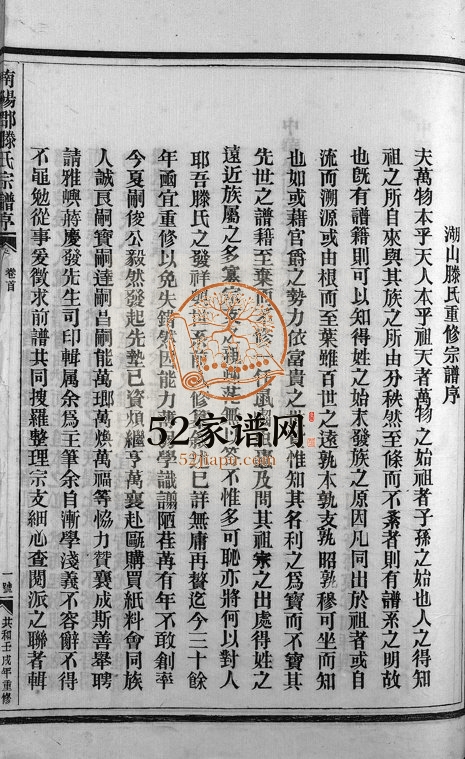 湖山滕氏重修宗譜序
夫萬物本乎天人本乎祖天者萬物之始祖者子孫之始也人之得知
祖之所自來與其族之所由分秩然至條而不紊者則有譜系之明故
也旣有譜籍則可以知得姓之始末發族之原因凡同出於祖者或自
流而溯源或由根而至葉雖百世之遠孰本孰支孰昭孰穆可坐而知
也如或藉官爵之勢力依富貴之 惟知其名利之為寶而不寶其
先世之譜籍至棄而不修一任 及問其祖宗之出處得姓之
遠近族屬之多寡宗支之 無以答不惟多可恥亦將何以對人
耶吾滕氏之發祥 系前 修 已詳無庸再贅迄今三十餘
年圅宜重修以免失錯 因能力 學識謭陋荏苒有年不敢創率
今夏嗣俊公毅然發起先墊已資煩繼亨萬襄赴甌購買紙料會同族
人誠良嗣寶嗣達嗣昌嗣能萬瑯萬煥萬福等恊力贊襄成斯善舉聘
請雅嶼蔣慶發先生司印輯属余為主筆余自漸學淺義不容辭不得
不黽勉從事爰徵求前譜共同搜羅整理宗支細心查閱派之聯者輯
南陽郡滕氏宗譜序
卷首
一號
共和壬戌年重修
52家谱网
52jiapu.com